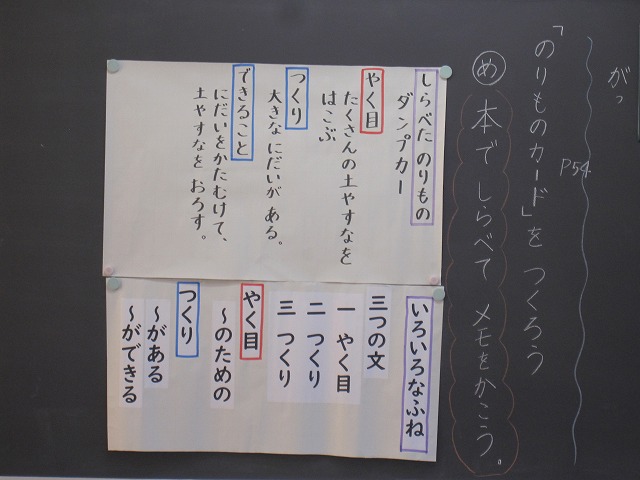 がっ
P54
「のりものカード」を つくろう
め 本で しらべて メモをかこう。
しらべた のりもの
ダンプカー
やく目
たくさんの土やすなを
はこぶ
つくり
大きな にだいが ある。
できること
にだいをかたむけて、
土やすなを おろす。
いろいろなふね
三つの文
一 やく目
二 つくり
三 つくり
やく目
～のための
つくり
～がある
～ができる